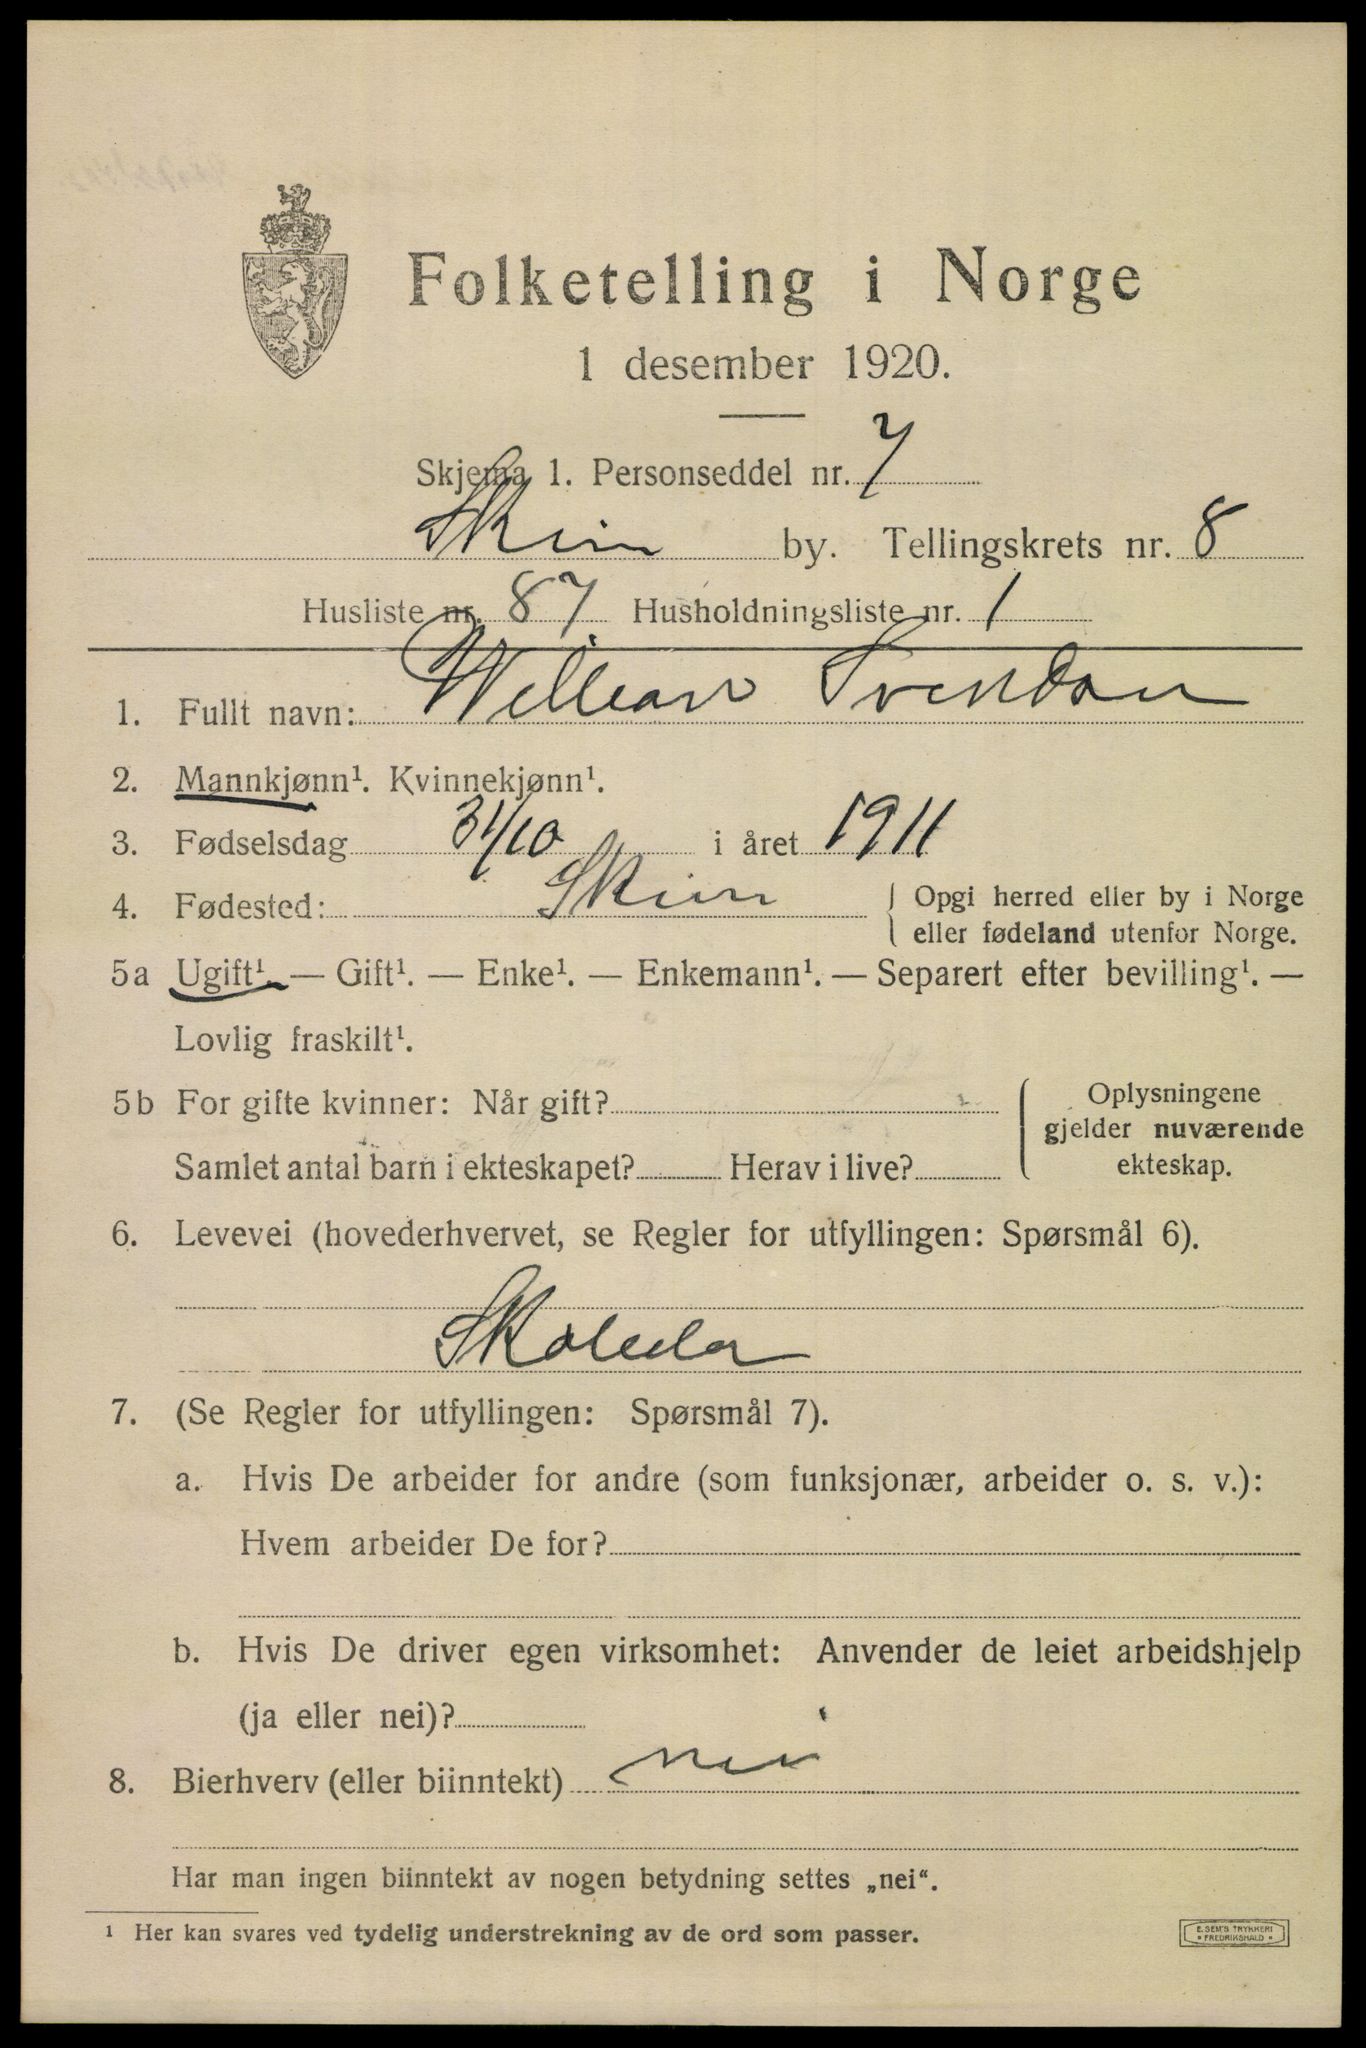 Folketelling i Norge
1 desember 1920.
Skjema 1. Personseddel nr. 7
Skien by. Tellingskrets nr. 8
Husliste nr. 87 Husholdningsliste nr. 1
1. Fullt navn: William Svendsen
2. Mannkjønn¹. Kvinnekjønn¹.
3. Fødselsdag 31/10 i året 1911
4. Fødested: Skien { Opgi herred eller by i Norge
eller fødeland utenfor Norge.
5a Ugift¹. — Gift¹. — Enke¹. — Enkemann¹. — Separert efter bevilling¹. —
Lovlig fraskilt¹.
5b For gifte kvinner: Når gift?
Samlet antal barn i ekteskapet? Herav i live?
Oplysningene
gjelder nuværende
ekteskap.
6. Levevei (hovederhvervet, se Regler for utfyllingen: Spørsmål 6).
7. (Se Regler for utfyllingen: Spørsmål 7).
a. Hvis De arbeider for andre (som funksjonær, arbeider o. s. v.):
Hvem arbeider De for?
b. Hvis De driver egen virksomhet: Anvender de leiet arbeidshjelp
(ja eller nei)?
8. Bierhverv (eller biinntekt) nei
Har man ingen biinntekt av nogen betydning settes „nei“.
¹ Her kan svares ved tydelig understrekning av de ord som passer.
E. SEM'S TRYKKERI
FREDRIKSHALD